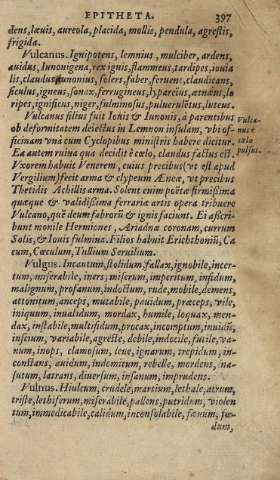 EPITHETA. 397
dens, læuis, aureola, placida, mollis, pendula, agrestis,
frigida.
Vulcanus. Ignipotens, lemnius, mulciber, ardens,
auidus, Iunonigena, rex ignis, flammeus, tardipes, iouia
lis, claudus, iunonius, solers, faber, feruens, claudicans,
siculus, igneus, sonax, ferrugineus, lypareius, ætnæus, lo
ripes, ignificus, niger, fulminosus, puluerulẽtus, luteus.
Vulcanus filius fuit Iouis & Iunonis, à parentibus
ob deformitatem deiectus in Lemnon insulam, vbi of-
ficinam vnà cum Cyclopibus ministris habere dicitur.
Ea autem ruina qua decidit è cœlo, claudus factus est.
Vulca-
nus è
cœlo
pulsus.
Vxorem habuit Venerem, cuius precibus (vt est apud
Vergilium) fecit arma & clypeum Æneæ, vt precibus
Thetidis Achillis arma. Solent enim poëtæ firmissima
quæque & validissima ferrariæ artis opera tribuere
Vulcano, quẽ deum fabrorũ & ignis faciunt. Ei ascri-
bunt monile Hermiones, Ariadnæ coronam, currum
Solis, & Iouis fulmina. Filios habuit Erichthoniũ, Ca
cum, Cæculum, Tullium Seruilium.
Vulgus. Incautum, stolidum, fallax, ignobile, incer-
tum, miserabile, iners, miserum, imperitum, insidum,
malignum, profanum, indoctum, rude, mobile, demens,
attonitum, anceps, mutabile, pauidum, præceps, vile,
iniquum, inualidum, mordax, humile, loquax, men-
dax, instabile, multifidum, procax, incomptum, inuidũ,
inscium, variabile, agreste, debile, indocile, futile, va-
num, inops, clamosum, leue, ignarum, trepidum, in-
constans, auidum, indomitum, rebelle, mordens, na-
sutum, latrans, diuersum, insanum, imprudens.
Vulnus. Hiulcum, crudele, martium, lethale, atrum,
triste, lethiferum, miserabile, pallens, putridum, violen
tum, immedicabile, calidum, inconsolabile, sæuum, fœ-
dum,